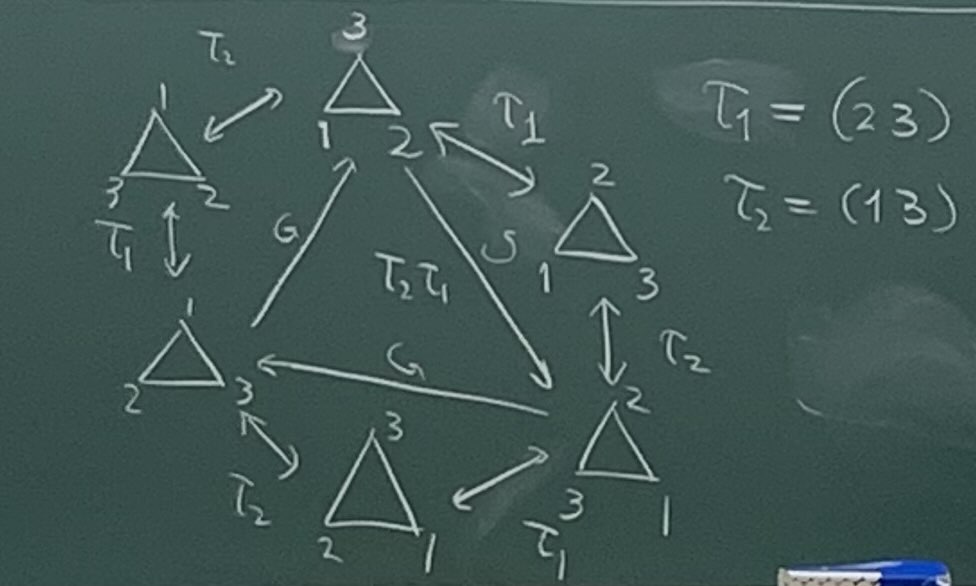 τ₂
3
1 2
τ₁
τ₁ = (2 3)
τ₂ = (1 3)
1
3 2
2
1 3
τ₁
G
τ₂τ₁
S
τ₂
1
2 3
G
2
3 1
τ₂
3
2 1
τ₁